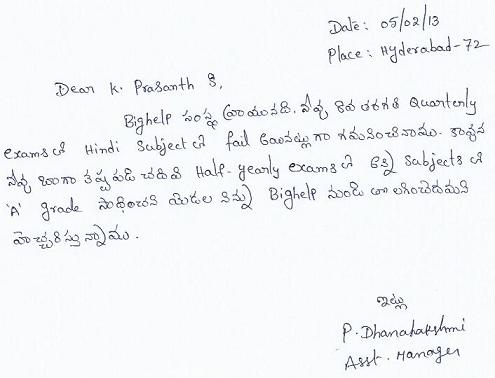 Date: 05/02/13
Place: Hyderabad-72
Dear K. Prasanth S,
Bighelp సంస్థ వ్రాయునది. నీవు 8వ తరగతి Quarterly
exams లో Hindi Subject లో fail అయినట్లుగా గమనించినాము. కావున
నీవు బాగా కష్టపడి చదివి Half-yearly exams లో అన్ని Subjects లో
'A' grade సాధించని యెడల నిన్ను Bighelp నుండి తొలగించెదమని
హెచ్చరిస్తున్నాము.
ఇట్లు
P. Dhanalakshmi
Asst. Manager